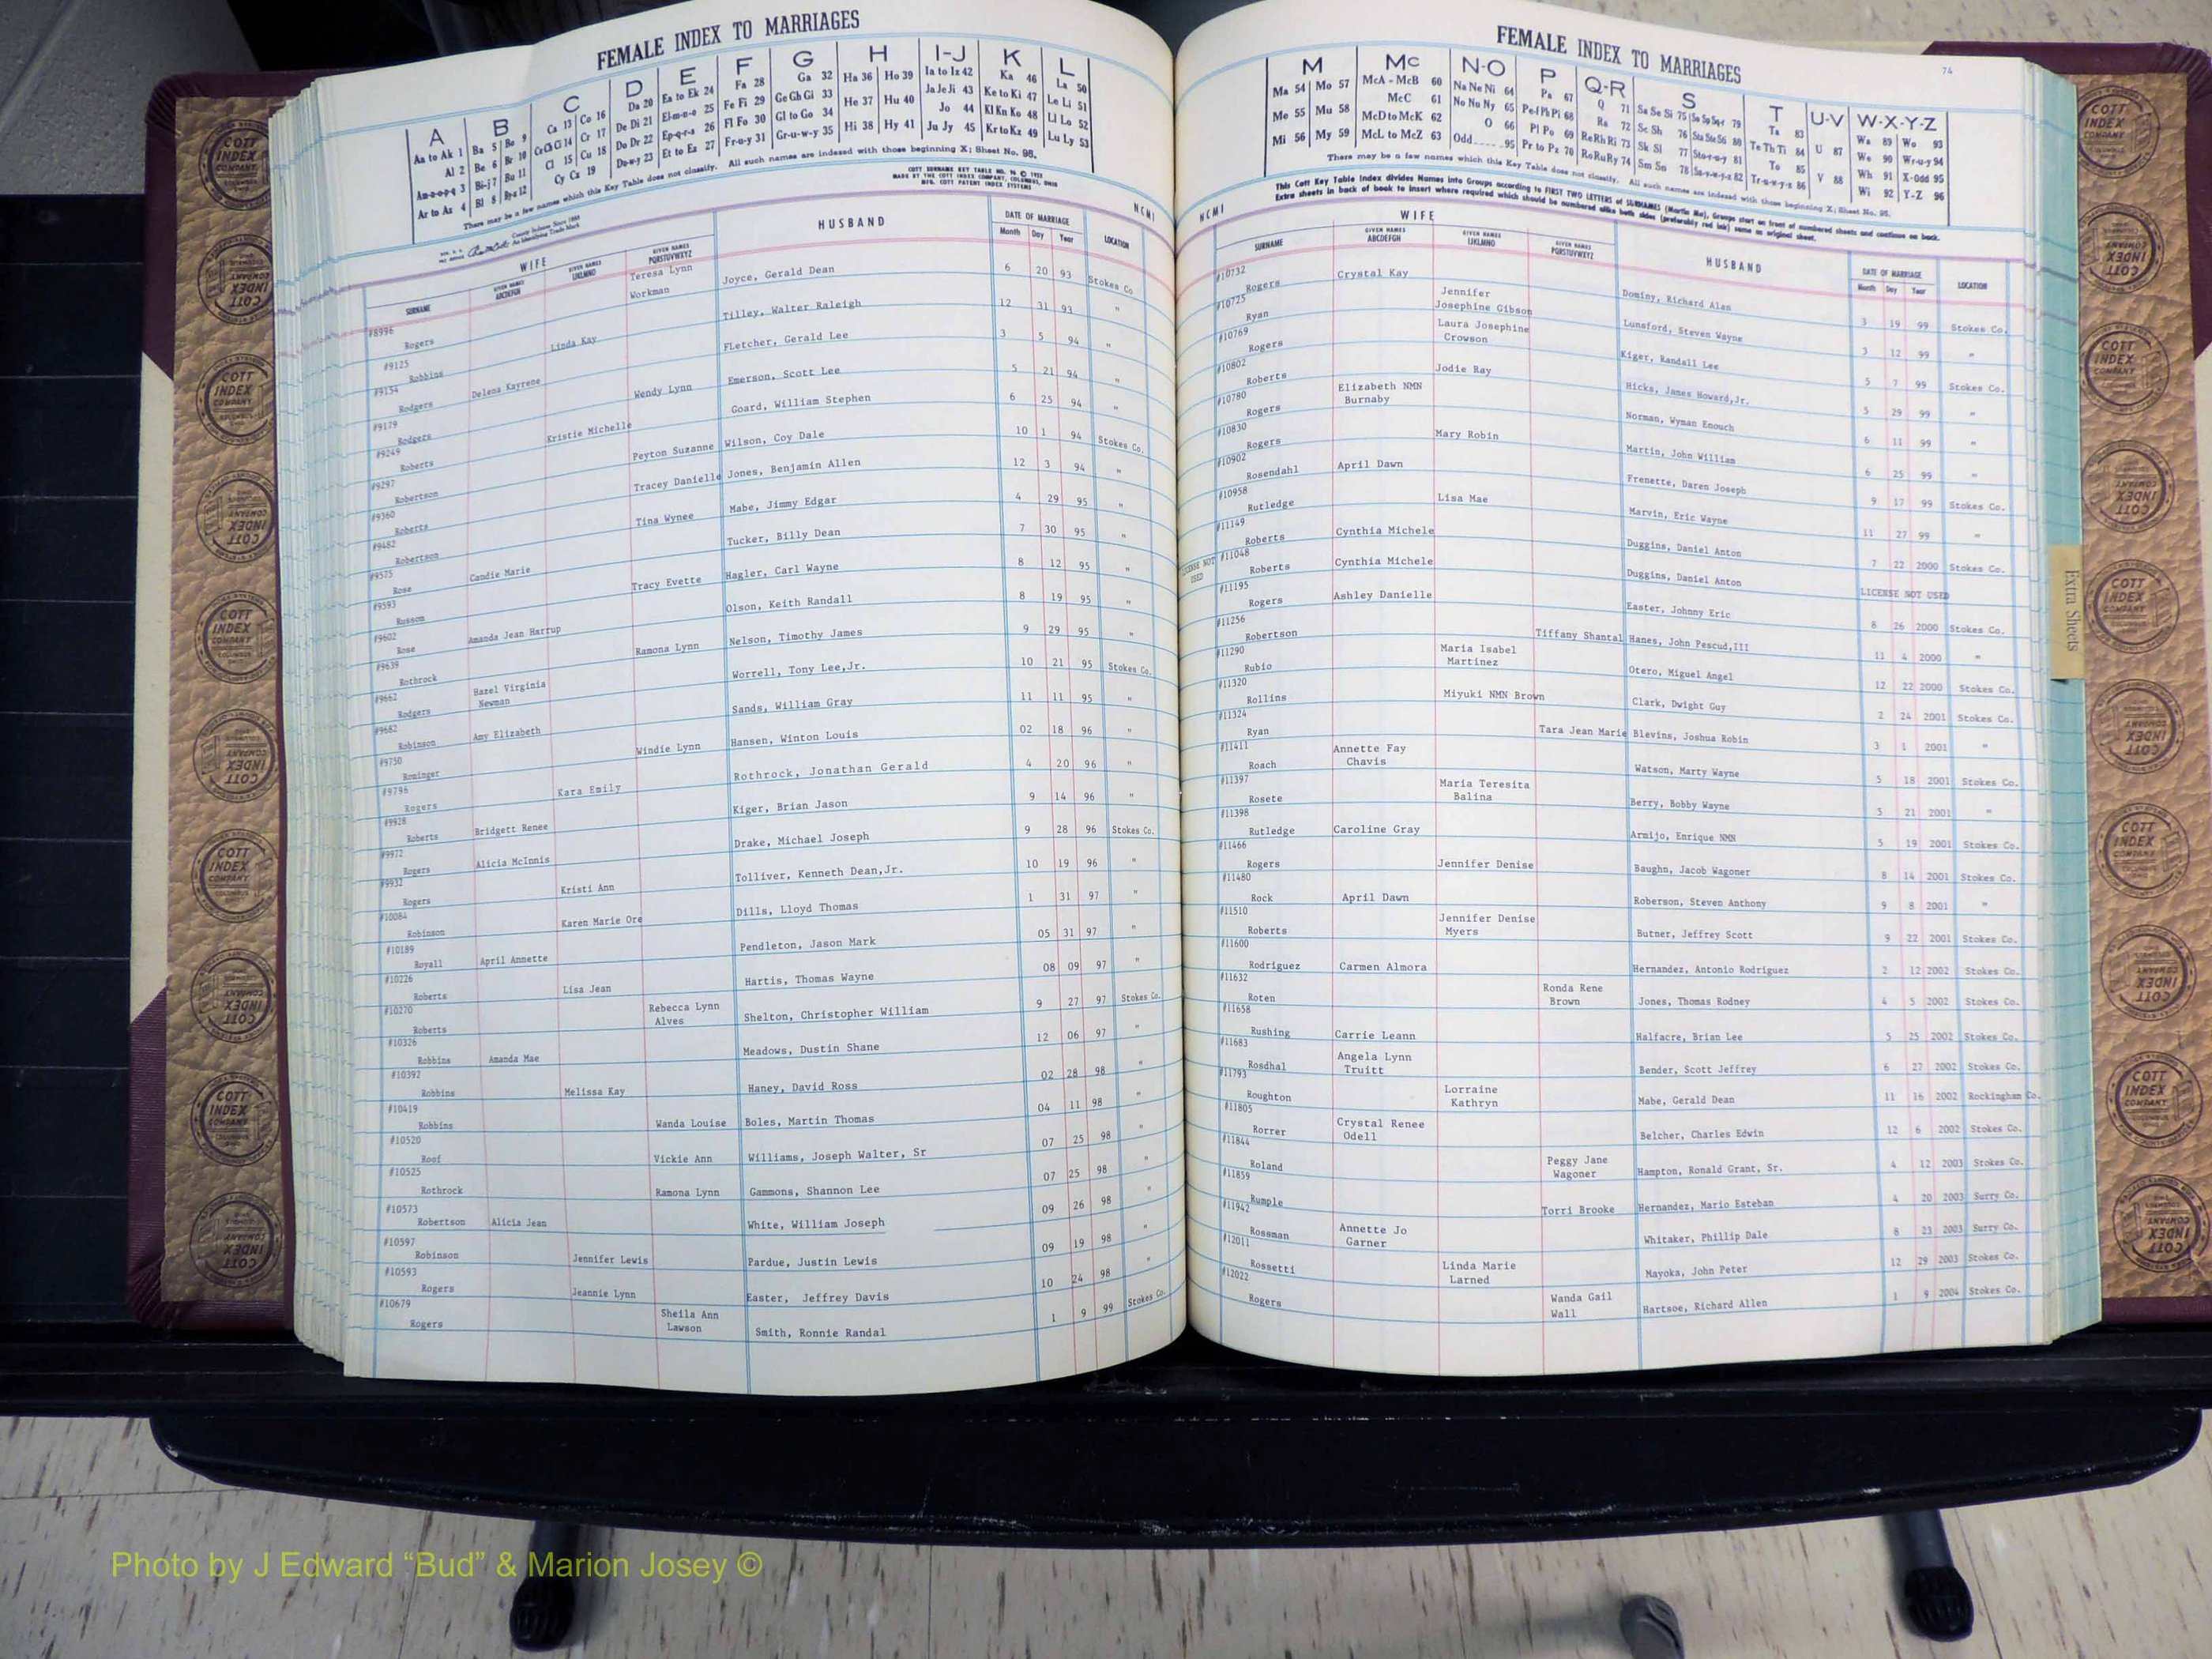 FEMALE INDEX TO MARRIAGES
A B C D E F G H I-J K L
Aa to Ak 1 Ba 5 Bo 9 Ca 13 Co 16 Da 20 Ea to Ek 24 Fa 28 Ga 32 Ha 36 Ho 39 Ia to Iz 42 Ka 46 La 50
Al 2 Be 6 Br 10 Ce Ch Ci 14 Cr 17 De Di 21 El-m-n-o 25 Fe Fi 29 Ge Gh Gi 33 He 37 Hu 40 Ja Je Ji 43 Ke to Ki 47 Le Li 51
Am-n-o-p-q 3 Bi-j 7 Bu 11 Cl 15 Cu 18 Do Dr 22 Ep-q-r-s 26 Fl Fo 30 Gl to Go 34 Hi 38 Hy 41 Jo 44 Kl Kn Ko 48 Ll Lo 52
Ar to Az 4 Bl 8 By-z 12 Cy Cz 19 Du-w-y 23 Et to Ez 27 Fr-u-y 31 Gr-u-w-y 35 Ju Jy 45 Kr to Kz 49 Lu Ly 53
There may be a few names which this Key Table does not classify. All such names are indexed with those beginning X; Sheet No. 95.
NCMI
WIFE HUSBAND DATE OF MARRIAGE LOCATION
SURNAME GIVEN NAMES ABCDEFGH GIVEN NAMES IJKLMNO GIVEN NAMES PQRSTUVWXYZ Month Day Year
#8996 Rogers Teresa Lynn Workman Joyce, Gerald Dean 6 20 93 Stokes Co
#9125 Robbins Linda Kay Tilley, Walter Raleigh 12 31 93 "
#9154 Rodgers Delena Kayrene FLetcher, Gerald Lee 3 5 94 "
#9179 Rodgers Wendy Lynn Emerson, Scott Lee 5 21 94 "
#9249 Roberts Kristie Michelle Goard, William Stephen 6 25 94 "
#9297 Robertson Peyton Suzanne Wilson, Coy Dale 10 1 94 Stokes Co.
#9360 Roberts Tracey Danielle Jones, Benjamin Allen 12 3 94 "
#9482 Robertson Tina Wynee Mabe, Jimmy Edgar 4 29 95 "
#9575 Rose Candie Marie Tucker, Billy Dean 7 30 95 "
#9593 Russom Tracy Evette Hagler, Carl Wayne 8 12 95 "
#9602 Rose Amanda Jean Harrup Olson, Keith Randall 8 19 95 "
#9639 Rothrock Ramona Lynn Nelson, Timothy James 9 29 95 "
#9662 Rodgers Hazel Virginia Newman Worrell, Tony Lee,Jr. 10 21 95 Stokes Co.
#9682 Robinson Amy Elizabeth Sands, William Gray 11 11 95 "
#9750 Rominger Windie Lynn Hansen, Winton Louis 02 18 96 "
#9796 Rogers Kara Emily Rothrock, Jonathan Gerald 4 20 96 "
#9928 Roberts Bridgett Renee Kiger, Brian Jason 9 14 96 "
#9972 Rogers Alicia McInnis Drake, Michael Joseph 9 28 96 Stokes Co.
#9932 Rogers Kristi Ann Tolliver, Kenneth Dean,Jr. 10 19 96 "
#10084 Robinson Karen Marie Ore Dills, Lloyd Thomas 1 31 97 "
#10189 Royall April Annette Pendleton, Jason Mark 05 31 97 "
#10226 Roberts Lisa Jean Hartis, Thomas Wayne 08 09 97 "
#10270 Roberts Rebecca Lynn Alves Shelton, Christopher William 9 27 97 Stokes Co.
#10326 Robbins Amanda Mae Meadows, Dustin Shane 12 06 97 "
#10392 Robbins Melissa Kay Haney, David Ross 02 28 98 "
#10419 Robbins Wanda Louise Boles, Martin Thomas 04 11 98 "
#10520 Roof Vickie Ann Williams, Joseph Walter, Sr 07 25 98 "
#10525 Rothrock Ramona Lynn Gammons, Shannon Lee 07 25 98 "
#10573 Robertson Alicia Jean White, William Joseph 09 26 98 "
#10597 Robinson Jennifer Lewis Pardue, Justin Lewis 09 19 98 "
#10593 Rogers Jeannie Lynn Easter, Jeffrey Davis 10 24 98 "
#10679 Rogers Sheila Ann Lawson Smith, Ronnie Randal 1 9 99 Stokes Co.
FEMALE INDEX TO MARRIAGES
74
M Mc N-O P Q-R S T U-V W-X-Y-Z
Ma 54 Mo 57 McA - McB 60 Na Ne Ni 64 Pa 67 Q 71 Sa Se Si 75 So Sp Sq-r 79 Ta 83 Wa 89 Wo 93
Me 55 Mu 58 McC 61 No Nu Ny 65 Pe-f Ph Pi 68 Ra 72 Sc Sh 76 Sta Ste 80 Te Th Ti 84 U 87 We 90 Wr-u-y 94
Mi 56 My 59 McD to McK 62 O 66 Pl Po 69 Re Rh Ri 73 Sk Sl 77 Sto-r-u-y 81 To 85 V 88 Wh 91 X-Odd 95
McL to McZ 63 Odd.....95 Pr to Pz 70 Ro Ru Ry 74 Sm Sn 78 Su-v-w-y-z 82 Tr-u-w-y-z 86 Wi 92 Y-Z 96
There may be a few names which this Key Table does not classify. All such names are indexed with those beginning X; Sheet No. 95.
This Cott Key Table Index divides Names into Groups according to FIRST TWO LETTERS of SURNAMES (Martin Ma), Groups start on front of numbered sheets and continue on back.
Extra sheets in back of book to insert where required which should be numbered alike both sides (preferably red ink) same as original sheet.
NCMI
WIFE HUSBAND DATE OF MARRIAGE LOCATION
SURNAME GIVEN NAMES ABCDEFGH GIVEN NAMES IJKLMNO GIVEN NAMES PQRSTUVWXYZ Month Day Year
#10732 Rogers Crystal Kay Dominy, Richard Alen 3 19 99 Stokes Co.
#10725 Ryan Jennifer Josephine Gibson Lunsford, Steven Wayne 3 12 99 "
#10769 Rogers Laura Josephine Crowson Kiger, Randall Lee 5 7 99 Stokes Co.
#10802 Roberts Jodie Ray Hicks, James Howard,Jr. 5 29 99 "
#10780 Rogers Elizabeth NMN Burnaby Norman, Wyman Enouch 6 11 99 "
#10830 Rogers Mary Robin Martin, John William 6 25 99 "
#10902 Rosendahl April Dawn Frenette, Daren Joseph 9 17 99 Stokes Co.
#10958 Rutledge Lisa Mae Marvin, Eric Wayne 11 27 99 "
#11149 Roberts Cynthia Michele Duggins, Daniel Anton 7 22 2000 Stokes Co.
LICENSE NOT USED #11048 Roberts Cynthia Michele Duggins, Daniel Anton LICENSE NOT USED
#11195 Rogers Ashley Danielle Easter, Johnny Eric 8 26 2000 Stokes Co.
#11256 Robertson Tiffany Shantal Hanes, John Pescud,III 11 4 2000 "
#11290 Rubio Maria Isabel Martinez Otero, Miguel Angel 12 22 2000 Stokes Co.
#11320 Rollins Miyuki NMN Brown Clark, Dwight Guy 2 24 2001 Stokes Co.
#11324 Ryan Tara Jean Marie Blevins, Joshua Robin 3 1 2001 "
#11411 Roach Annette Fay Chavis Watson, Marty Wayne 5 18 2001 Stokes Co.
#11397 Rosete Maria Teresita Balina Berry, Bobby Wayne 5 21 2001 "
#11398 Rutledge Caroline Gray Armijo, Enrique NMN 5 19 2001 Stokes Co.
#11466 Rogers Jennifer Denise Baughn, Jacob Wagoner 8 14 2001 Stokes Co.
#11480 Rock April Dawn Roberson, Steven Anthony 9 8 2001 "
#11510 Roberts Jennifer Denise Myers Butner, Jeffrey Scott 9 22 2001 Stokes Co.
#11600 Rodriguez Carmen Almora Hernandez, Antonio Rodriguez 2 12 2002 Stokes Co.
#11632 Roten Ronda Rene Brown Jones, Thomas Rodney 4 5 2002 Stokes Co.
#11658 Rushing Carrie Leann Halfacre, Brian Lee 5 25 2002 Stokes Co.
#11683 Rosdhal Angela Lynn Truitt Bender, Scott Jeffrey 6 27 2002 Stokes Co.
#11793 Roughton Lorraine Kathryn Mabe, Gerald Dean 11 16 2002 Rockingham Co.
#11805 Rorrer Crystal Renee Odell Belcher, Charles Edwin 12 6 2002 Stokes Co.
#11844 Roland Peggy Jane Wagoner Hampton, Ronald Grant, Sr. 4 12 2003 Stokes Co.
#11859 Rumple Torri Brooke Hernandez, Mario Esteban 4 20 2003 Surry Co.
#11942 Rossman Annette Jo Garner Whitaker, Phillip Dale 8 23 2003 Surry Co.
#12011 Rossetti Linda Marie Larned Mayoka, John Peter 12 29 2003 Stokes Co.
#12022 Rogers Wanda Gail Wall Hartsoe, Richard Allen 1 9 2004 Stokes Co.
Extra Sheets
COTT INDEX COMPANY
Photo by J Edward “Bud” & Marion Josey ©